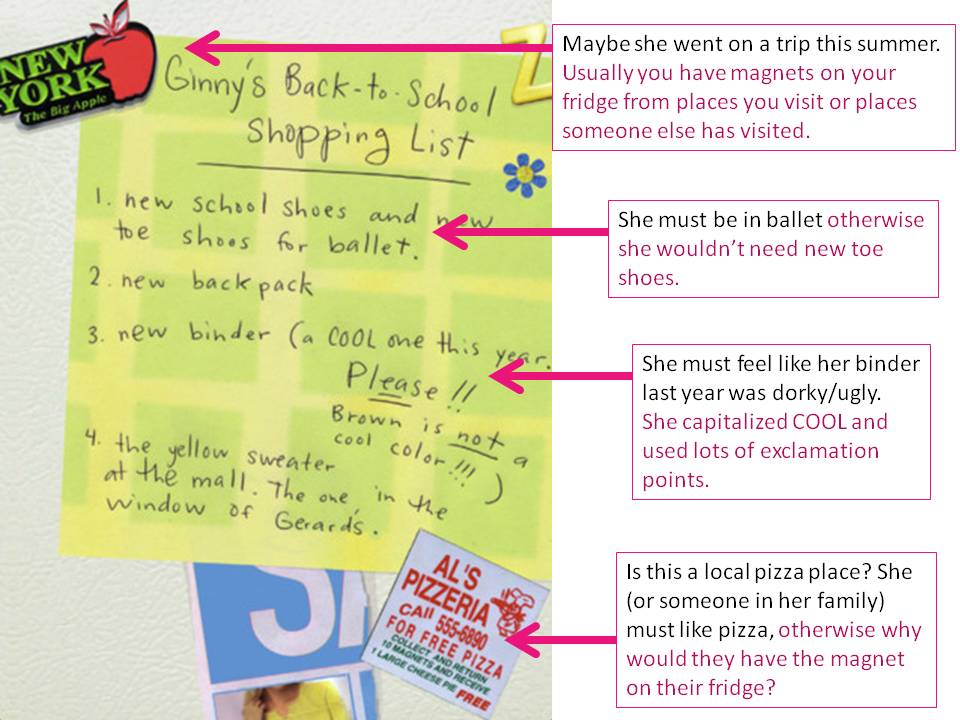 NEW
YORK
The Big Apple
Ginny's Back-to-School
Shopping List
1. new school shoes and new
toe shoes for ballet.
2. new backpack
3. new binder (a COOL one this year.
Please!!
Brown is not a
cool color!!!)
4. the yellow sweater
at the mall. The one in the
window of Gerard's.
SA
AL'S
PIZZERIA
CAll 555-6890
FOR FREE PIZZA
COLLECT AND RETURN
10 MAGNETS AND RECEIVE
1 LARGE CHEESE PIE FREE
Maybe she went on a trip this summer.
Usually you have magnets on your
fridge from places you visit or places
someone else has visited.
She must be in ballet otherwise
she wouldn't need new toe
shoes.
She must feel like her binder
last year was dorky/ugly.
She capitalized COOL and
used lots of exclamation
points.
Is this a local pizza place? She
(or someone in her family)
must like pizza, otherwise why
would they have the magnet
on their fridge?